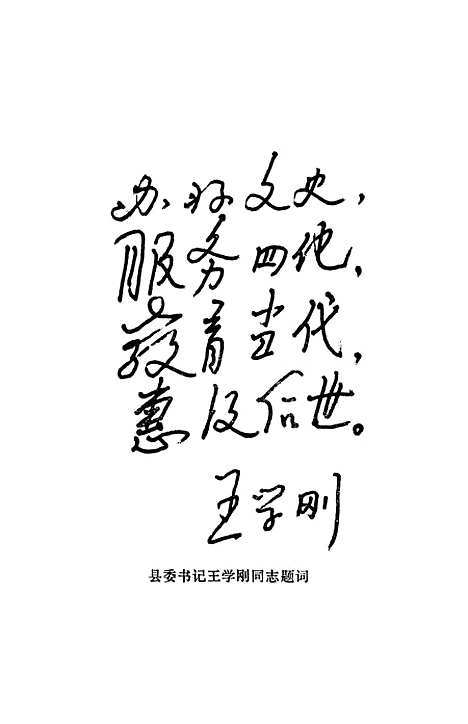 办好文史，
服务四化，
教育当代，
惠及后世。
王学刚
县委书记王学刚同志题词